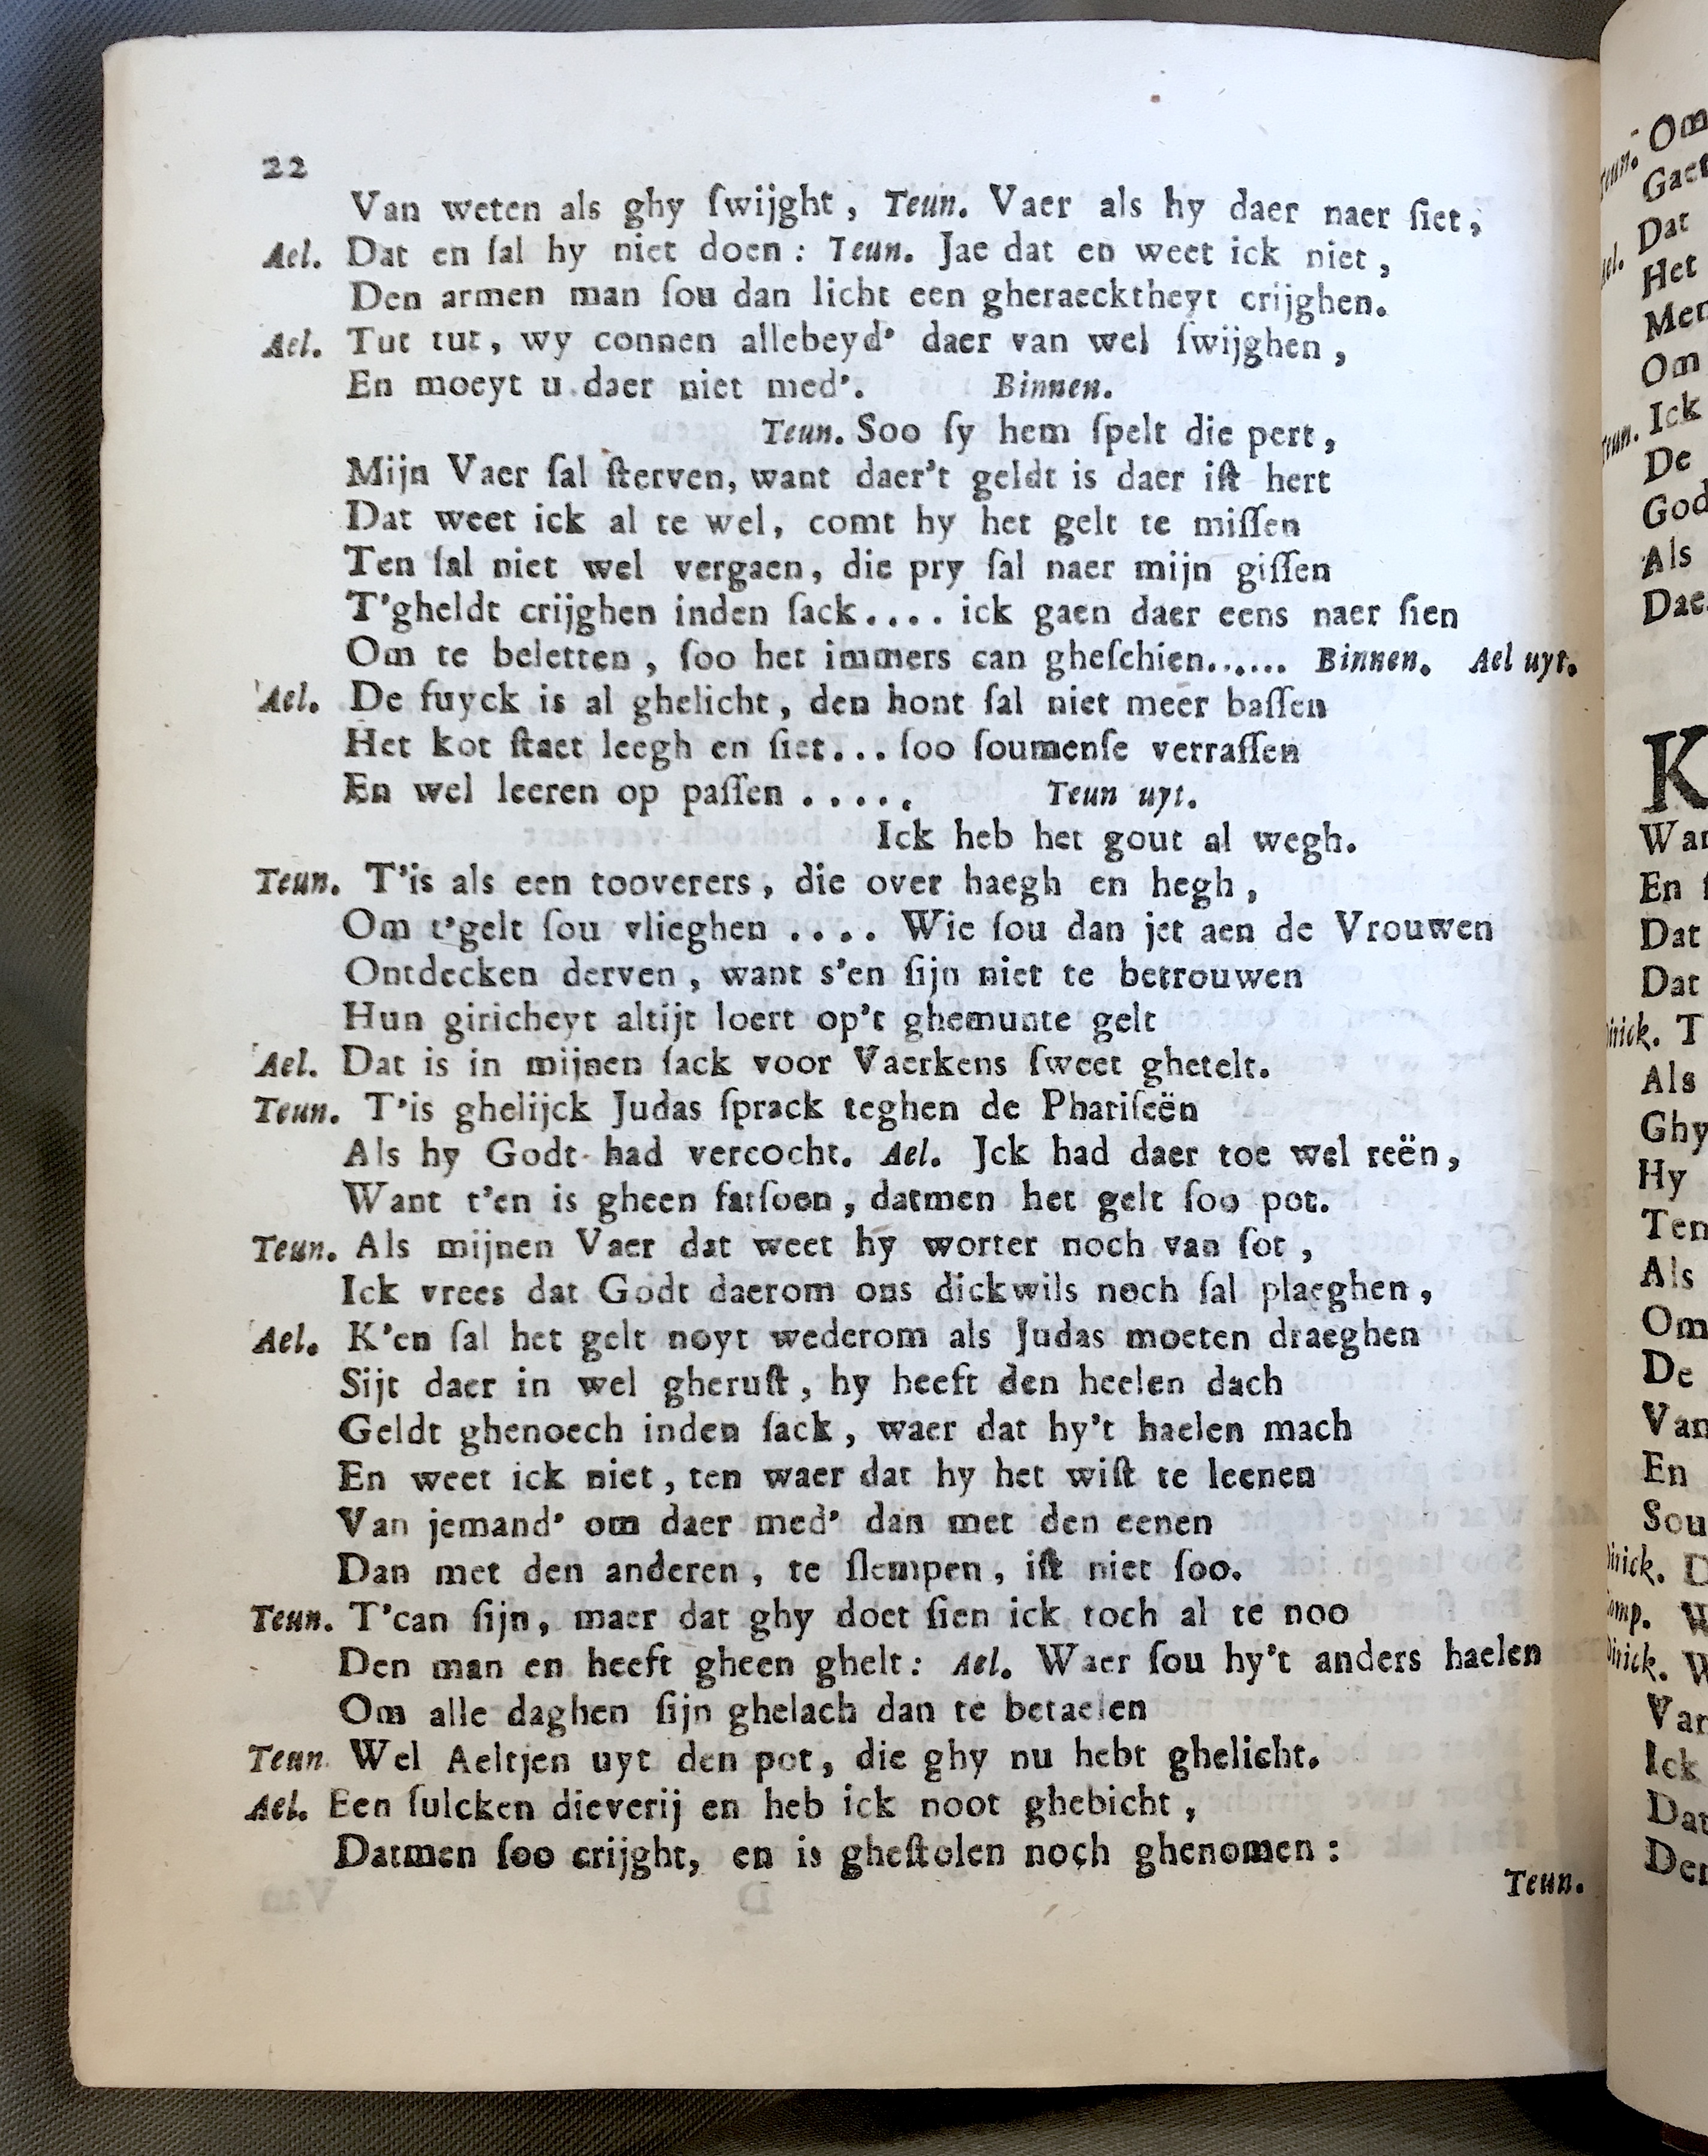 22
Van weten als ghy ſwijght, Teun. Vaer als hy daer naer ſiet,
Ael. Dat en ſal hy niet doen: Teun. Jae dat en weet ick niet,
Den armen man ſou dan licht een gheraecktheyt crijghen.
Ael. Tut tut, wy connen allebeyd' daer van wel ſwijghen,
En moeyt u daer niet med'. Binnen.
Teun. Soo ſy hem ſpelt die pert,
Mijn Vaer ſal ſterven, want daer't geldt is daer iſt hert
Dat weet ick al te wel, comt hy het gelt te miſſen
Ten ſal niet wel vergaen, die pry ſal naer mijn giſſen
T'gheldt crijghen inden ſack.... ick gaen daer eens naer ſien
Om te beletten, ſoo het immers can gheſchien...... Binnen. Ael uyt.
Ael. De fuyck is al ghelicht, den hont ſal niet meer baſſen
Het kot ſtaet leegh en ſiet... ſoo ſoumenſe verraſſen
En wel leeren op paſſen ..... Teun uyt.
Ick heb het gout al wegh.
Teun. T'is als een tooverers, die over haegh en hegh,
Om t'gelt ſou vlieghen .... Wie ſou dan jet aen de Vrouwen
Ontdecken derven, want s'en ſijn niet te betrouwen
Hun giricheyt altijt loert op't ghemunte gelt
Ael. Dat is in mijnen ſack voor Vaerkens ſweet ghetelt.
Teun. T'is ghelijck Judas ſprack teghen de Phariſeën
Als hy Godt had vercocht. Ael. Jck had daer toe wel reën,
Want t'en is gheen fatſoen, datmen het gelt ſoo pot.
Teun. Als mijnen Vaer dat weet hy worter noch van ſot,
Ick vrees dat Godt daerom ons dickwils noch ſal plaeghen,
Ael. K'en ſal het gelt noyt wederom als Judas moeten draeghen
Sijt daer in wel gheruſt, hy heeft den heelen dach
Geldt ghenoech inden ſack, waer dat hy't haelen mach
En weet ick niet, ten waer dat hy het wiſt te leenen
Van jemand' om daer med' dan met den eenen
Dan met den anderen, te ſlempen, iſt niet ſoo.
Teun. T'can ſijn, maer dat ghy doet ſien ick toch al te noo
Den man en heeft gheen ghelt: Ael. Waer ſou hy't anders haelen
Om alle daghen ſijn ghelach dan te betaelen
Teun. Wel Aeltjen uyt den pot, die ghy nu hebt ghelicht.
Ael. Een ſulcken dieverij en heb ick noot ghebicht,
Datmen ſoo crijght, en is gheſtolen noch ghenomen:
Teun.
Om
Dat
Het
Om
Ick
De
Als
K
Dat
Dat
Als
Ghy
Hy
Ten
Als
Om
De
Van
En
Sou
Ick